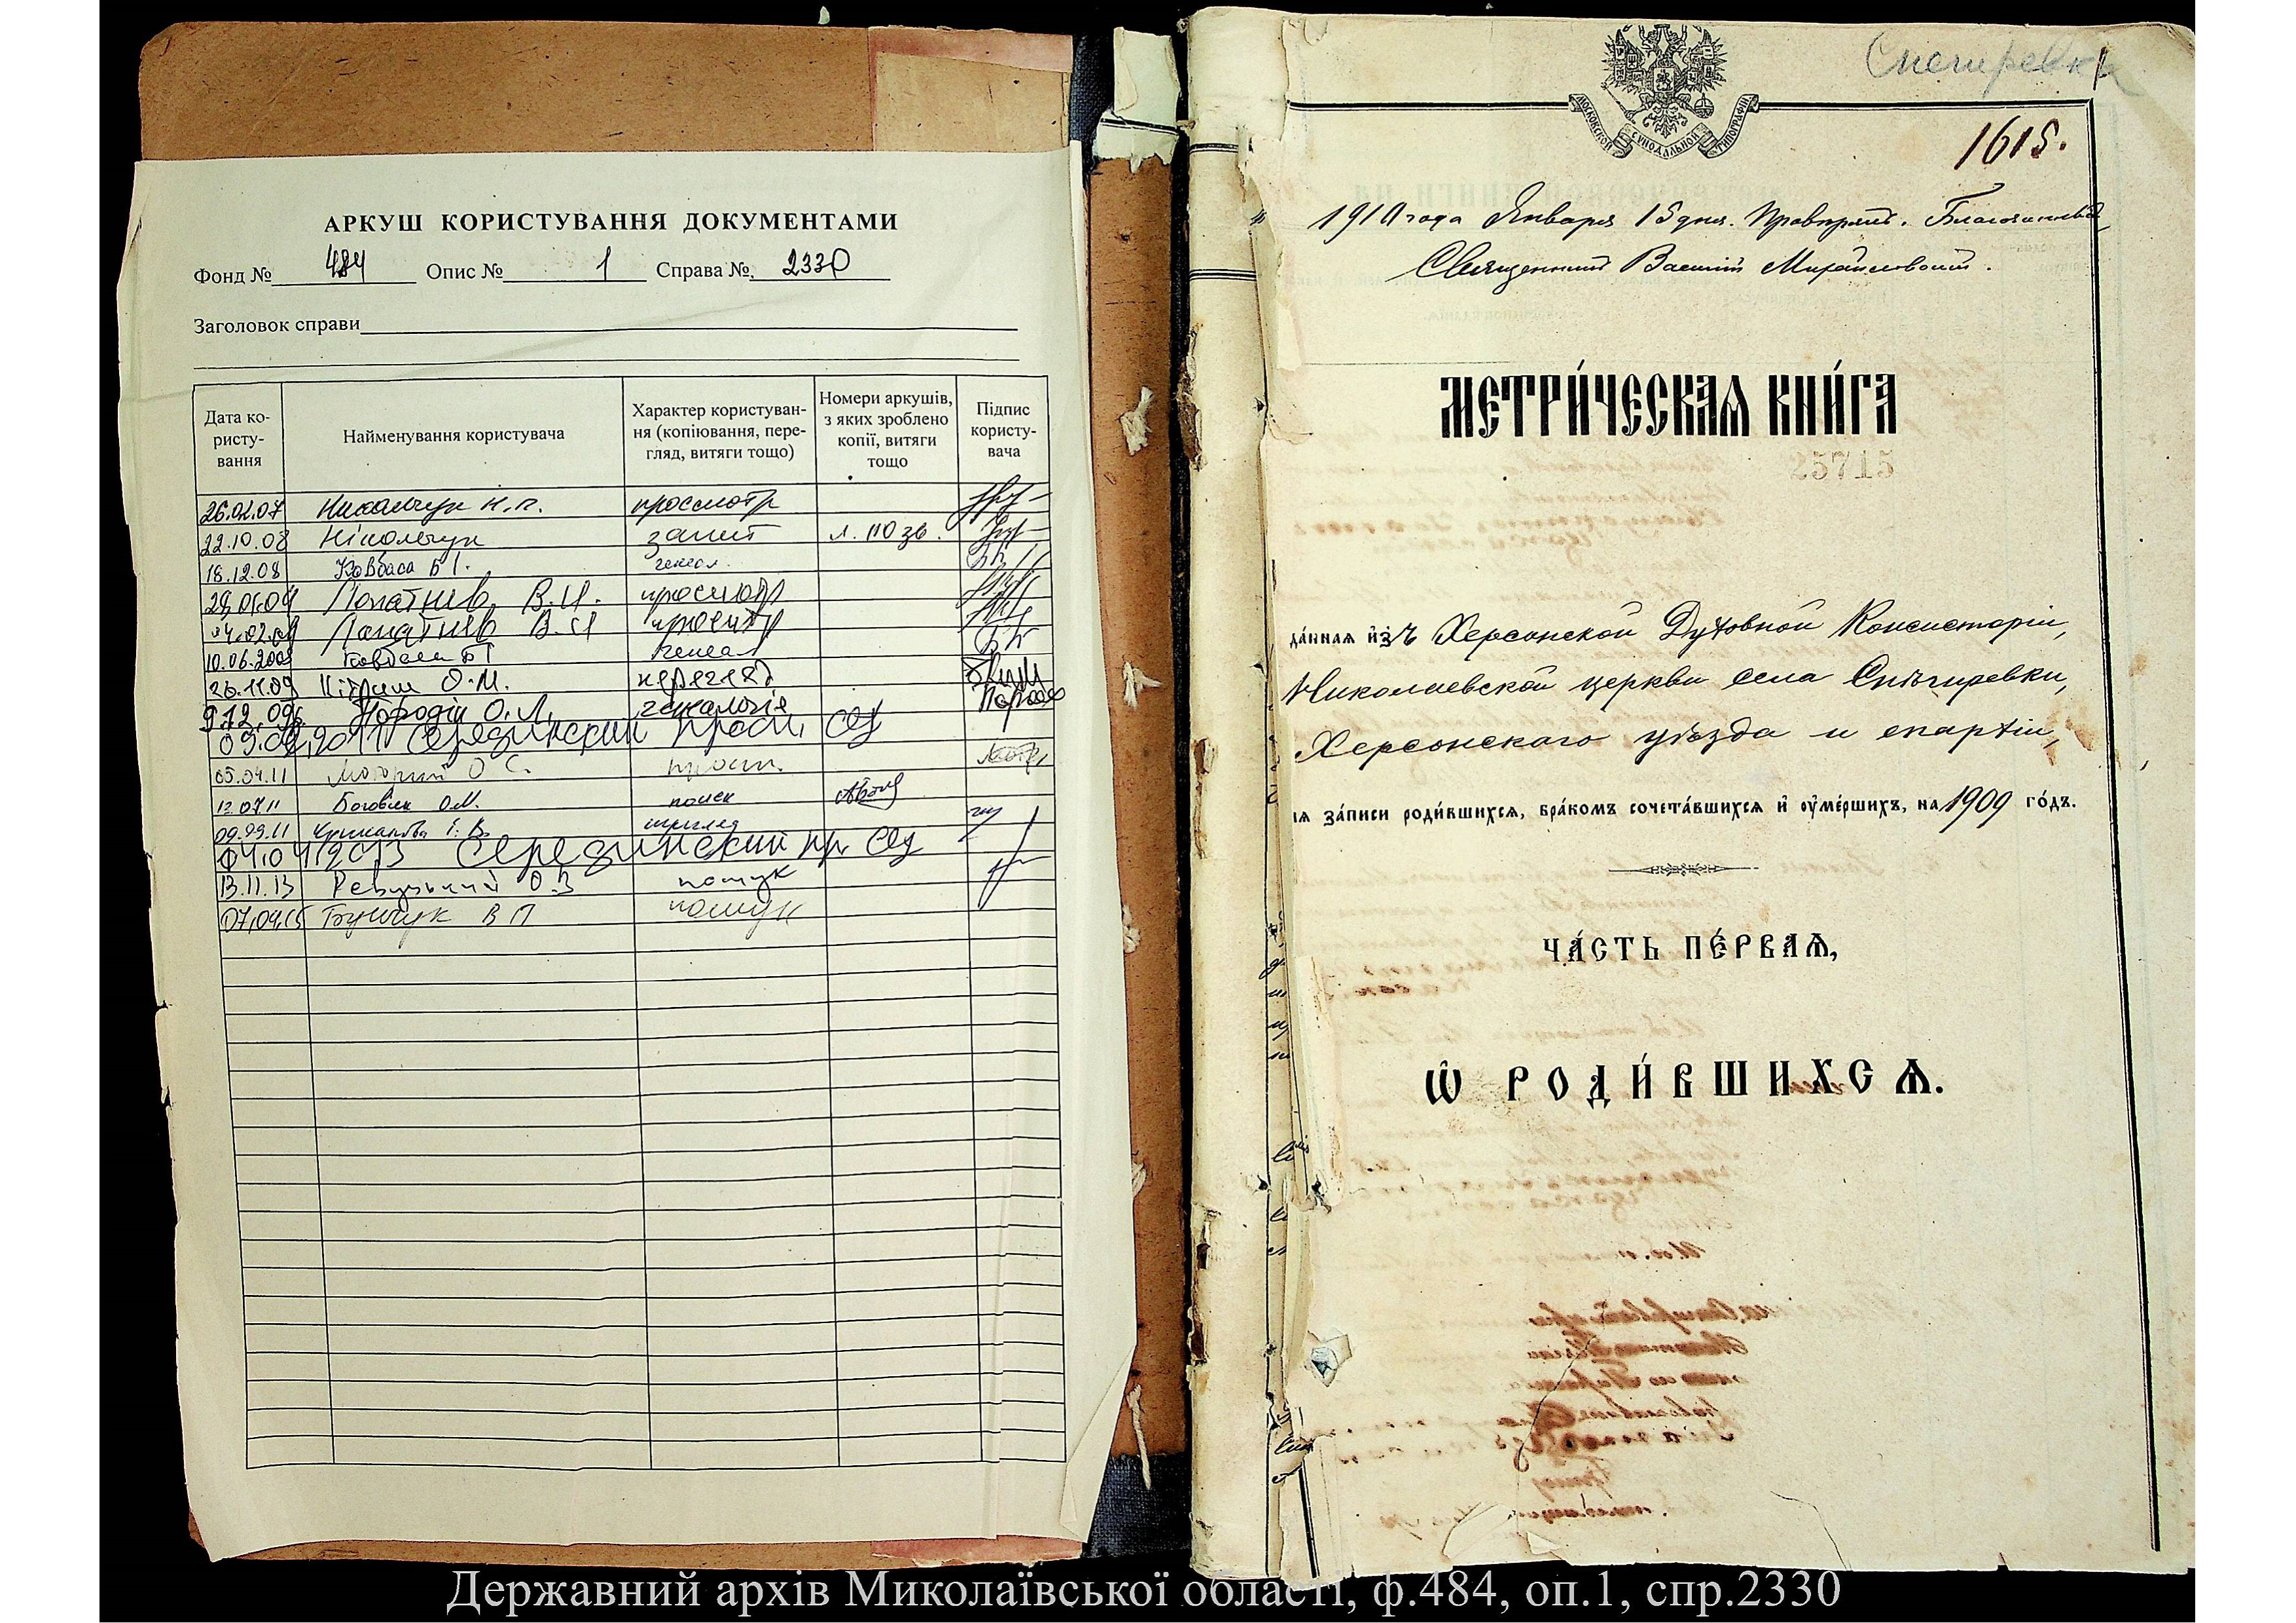 АРКУШ КОРИСТУВАННЯ ДОКУМЕНТАМИ
Фонд № 484 Опис № 1 Справа № 2330
Заголовок справи
Дата користу-
вання
Найменування користувача
Характер користуван-
ня (копіювання, пере-
гляд, витяги тощо)
Номери аркушів,
з яких зроблено
копії, витяги
тощо
Підпис
користу-
вача
26.02.07 Никольчук Н.П. просмотр
22.10.08 Нікольчук запит л. 110 зв.
18.12.08 Ковбаса Б.І. генеал.
29.01.09 Лопатнев В.И. просмотр
04.02.09 Лопатнев В.И
10.06.2009 Ковбаса БІ генеал
26.11.09 О.М. перегляд
9.12.09 О.Л. генеалогія
2011 Серединский просм.
05.04.11 О С. просм.
12.07.11 Боговик О.М. поиск
09.11
04.04.2013 Серединский пр
13.11.13 О.З пошук
07.09.15 В П пошук
Снегиревка
МОСКОВСКОЙ СУНОДАЛЬНОЙ ТИПОГРАФІИ
1615.
1910 года Января 15 дня.
Священник Василий Михайловский.
МЕТРИ́ЧЕСКАѦ КНИ́ГА
25715
да́нная и҆зъ Херсонской Духовной Консисторіи,
Николаевской церкви села Снѣгиревки,
Херсонскаго уѣзда и епархіи,
ля за́писи роди́вшихся, бра́комъ сочета́вшихся и҆ ᲂу҆ме́ршихъ, на 1909 го́дъ.
ЧА́СТЬ ПЕ́РВАѦ,
Ѽ РОДИ́ВШИХСѦ.
Державний архів Миколаївської області, ф.484, оп.1, спр.2330